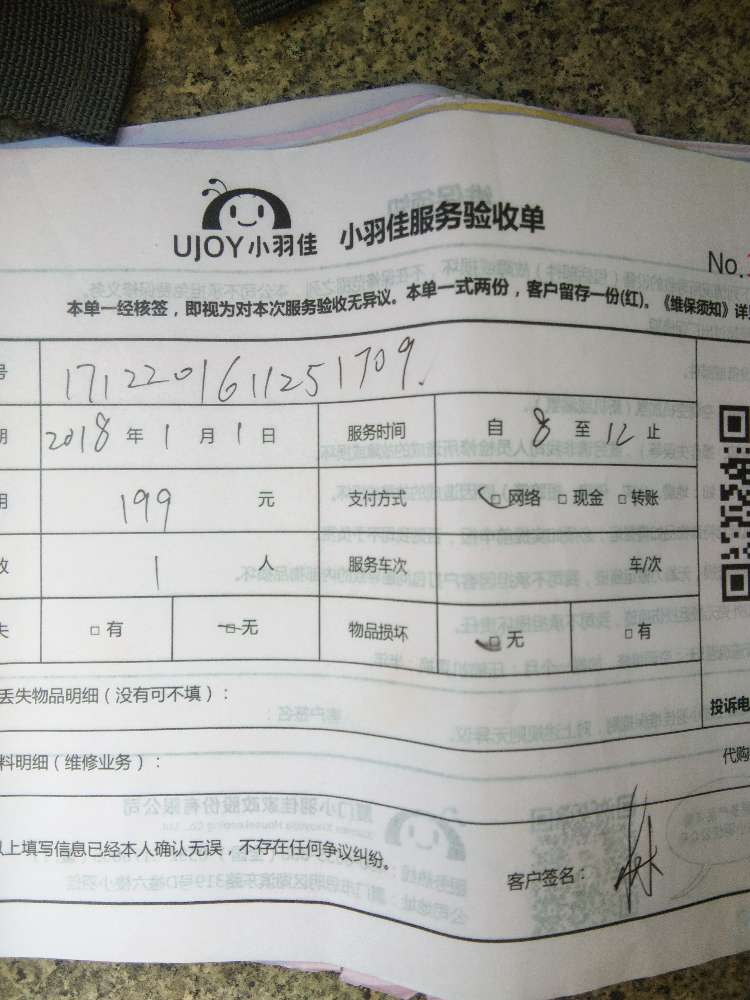 UJOY小羽佳 小羽佳服务验收单
No.
本单一经核签，即视为对本次服务验收无异议。本单一式两份，客户留存一份(红)。《维保须知》详
号 1712201611251709
期 2018 年 1 月 1 日 服务时间 自 8 至 12 止
用 199 元 支付方式 □网络 □现金 □转账
数 1 人 服务车次 车/次
失 □有 □无 物品损坏 □无 □有
丢失物品明细（没有可不填）：
投诉电
料明细（维修业务）：
代购
以上填写信息已经本人确认无误，不存在任何争议纠纷。
客户签名： 林